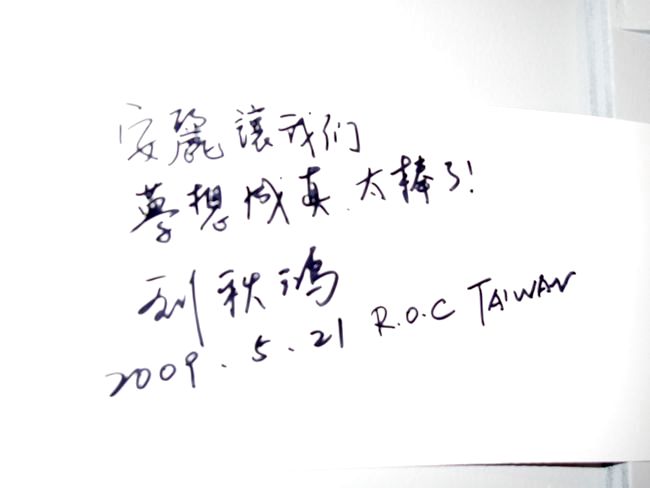 安麗讓我们
夢想成真 太棒了!
刘秋鴻
2009.5.21 R.O.C TAIWAN